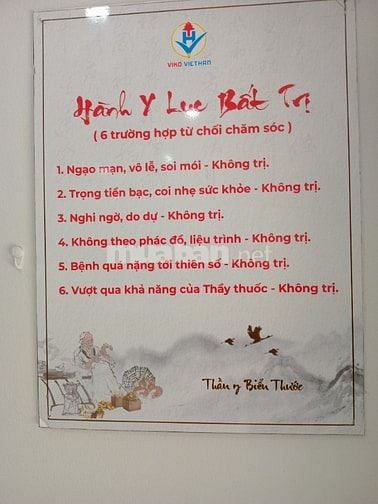 VIKO VIETHAN
Hành Y Lục Bất Trị
( 6 trường hợp từ chối chăm sóc )
1. Ngạo mạn, vô lễ, soi mói - Không trị.
2. Trọng tiền bạc, coi nhẹ sức khỏe - Không trị.
3. Nghi ngờ, do dự - Không trị.
4. Không theo phác đồ, liệu trình - Không trị.
5. Bệnh quá nặng tới thiên số - Không trị.
6. Vượt quá khả năng của Thầy thuốc - Không trị.
Thần y Biển Thước